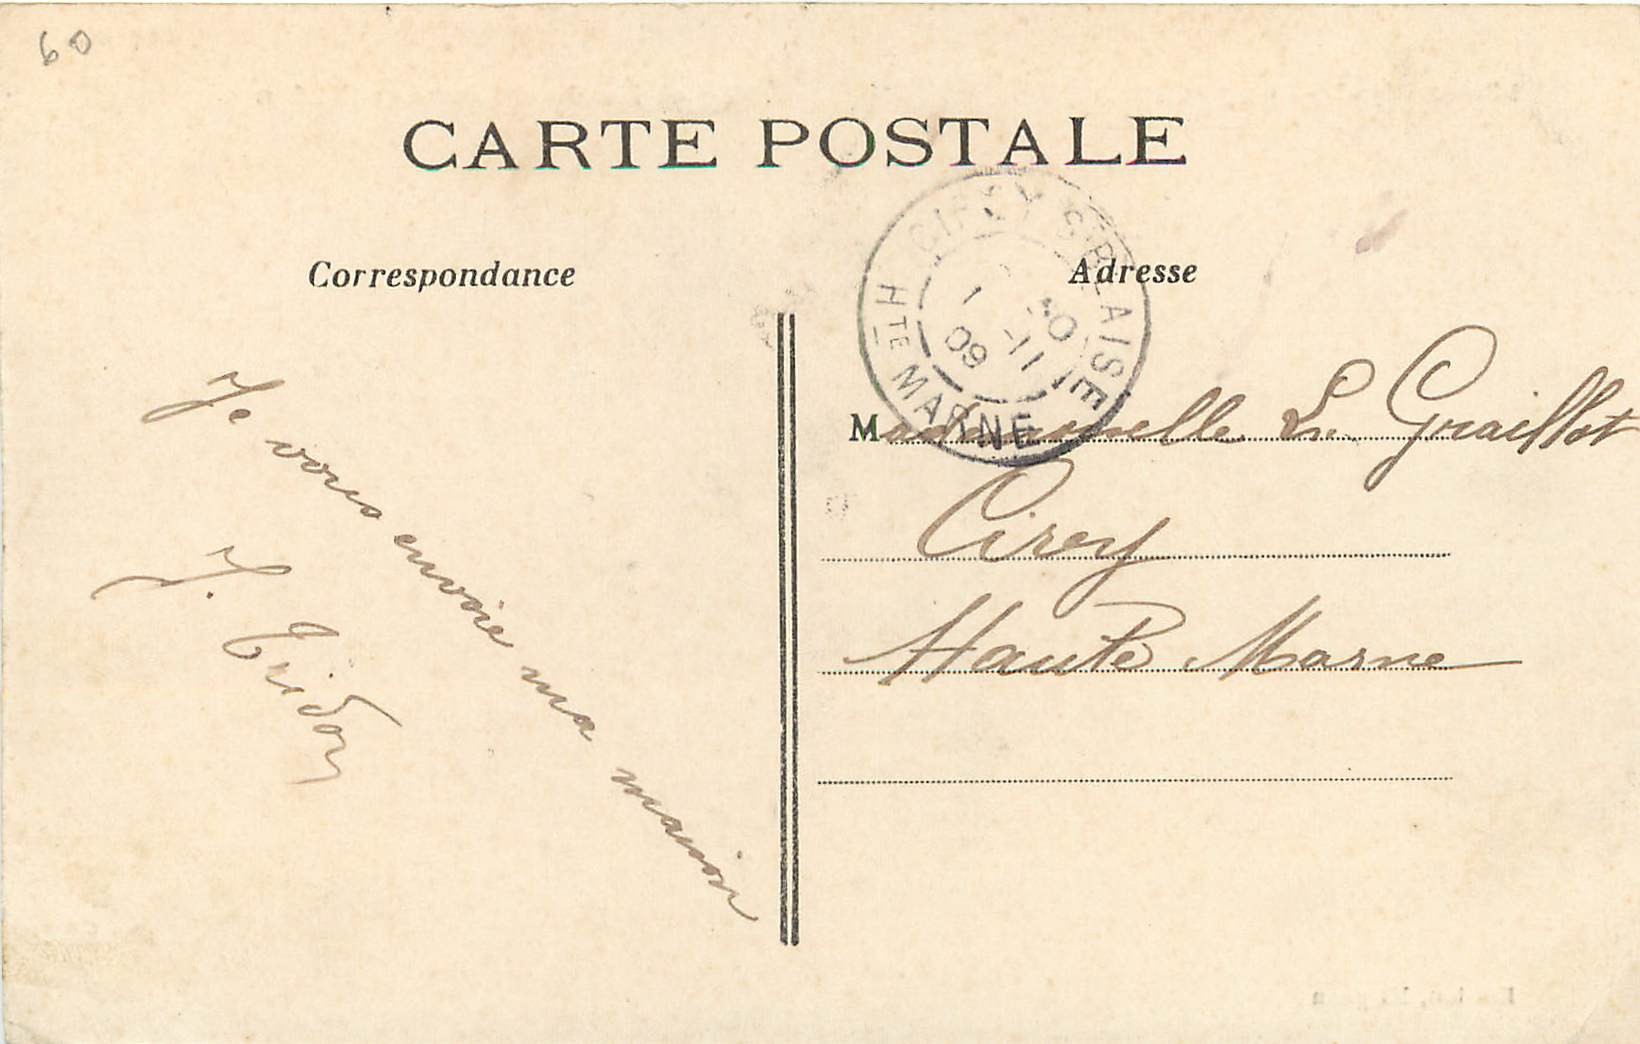 60
CARTE POSTALE
Correspondance
Adresse
CIREY S BLAISE
1 30
-11
09
HTE MARNE
Je vous envoie ma maison
J. Tridon
Mademoiselle L. Graillot
Cirey
Haute Marne